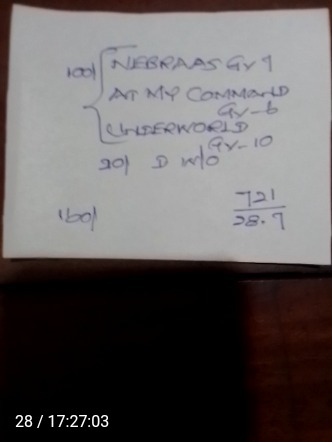 100/ NEBRAAS GV 9
AT MY COMMAND
GV-6
UNDERWORLD
GV-10
20/ D w/o
160/
721
28.7
28 / 17:27:03